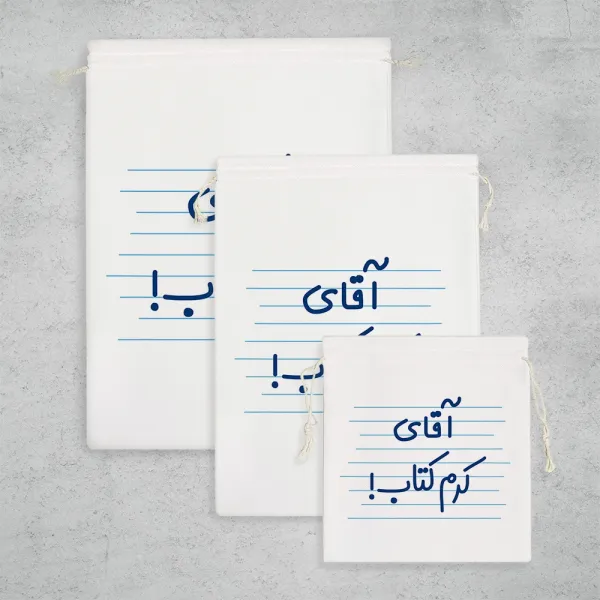 ی
ب!
آقای
ب!
آقای
کرم کتاب!